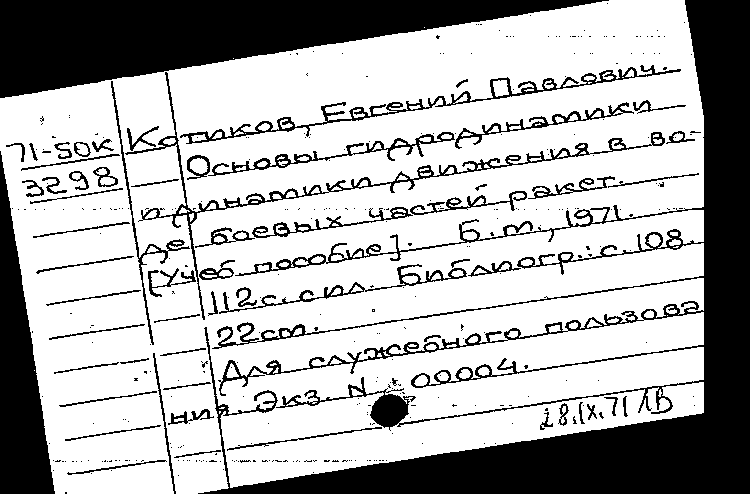 71-50К Котиков, Евгений Павлович.
3298 Основы гидродинамики
и динамики движения в во-
де боевых частей ракет.
[Учеб. пособие]. Б.м., 1971.
112с. с ил. Библиогр.: с. 108.
22см.
Для служебного пользова
ния. Экз. N 00004.
28.IX.71